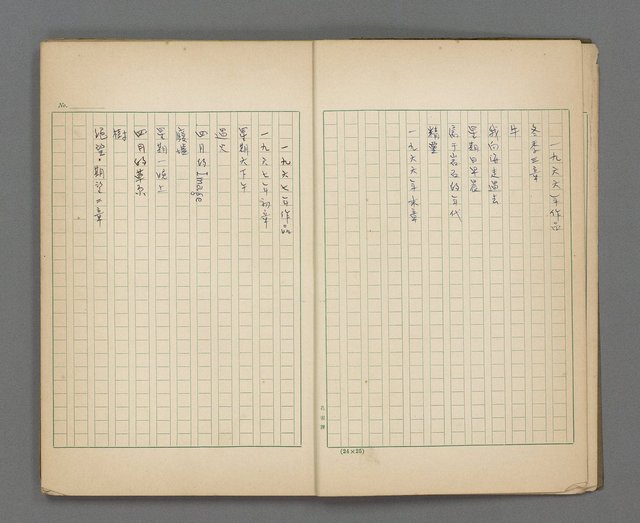 一九六六年作品
冬季三章
牛
我向海走過去
星期日早晨
屬于岩石的年代
精靈
一九六六年末章
(24×25)
No.
一九六七年作品
一九六七年初章
星期六下午
過火
四月的Image
廢墟
星期一晚上
四月的草原
樹
絕望·期望二章